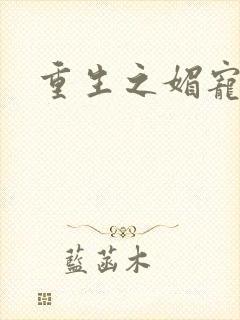 重生之媚寵
藍菡木